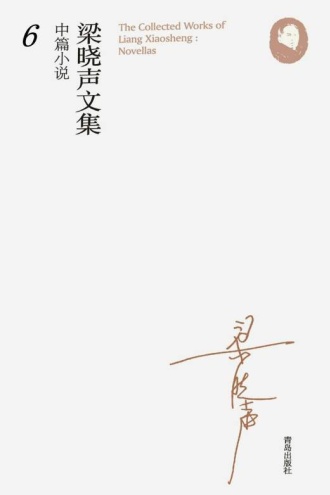 6
梁晓声文集
中篇小说
The Collected Works of
Liang Xiaosheng :
Novellas
梁晓声
青岛出版社